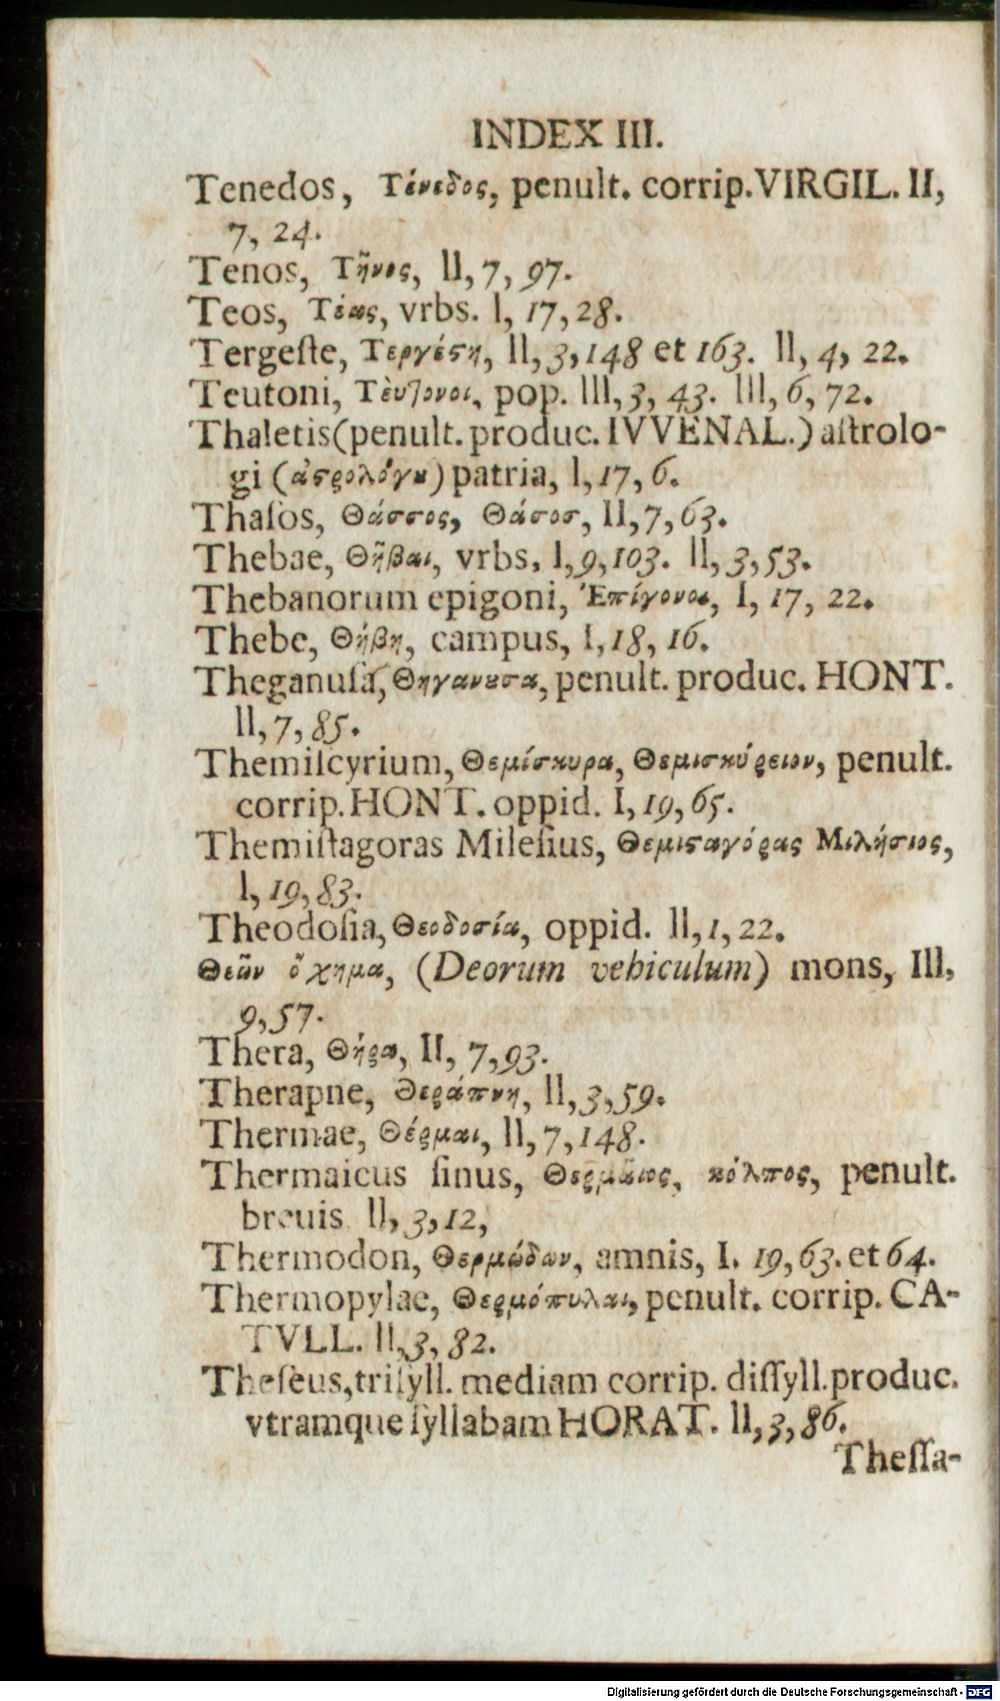 INDEX III.
Tenedos, Τένεδος, penult. corrip. VIRGIL. II,
7, 24.
Tenos, Τῆνος, II, 7, 97.
Teos, Τέως, vrbs. I, 17, 28.
Tergeſte, Τεργέϛη, II, 3, 148 et 163. II, 4, 22.
Teutoni, Τὲυτονοι, pop. III, 3, 43. III, 6, 72.
Thaletis (penult. produc. IVVENAL.) aſtrolo-
gi (ἀϛρολόγȣ) patria, I, 17, 6.
Thaſos, Θάσσος, Θάσοσ, II, 7, 63.
Thebae, Θῆβαι, vrbs. I, 9, 103. II, 3, 53.
Thebanorum epigoni, Ἐπίγονοι, I, 17, 22.
Thebe, Θήβη, campus, I, 18, 16.
Theganuſa, Θηγανȣσα, penult. produc. HONT.
II, 7, 85.
Themiſcyrium, Θεμίσκυρα, Θεμισκύρειον, penult.
corrip. HONT. oppid. I, 19, 65.
Themiſtagoras Mileſius, Θεμιϛαγόρας Μιλήσιος,
I, 19, 83.
Theodoſia, Θεοδοσία, oppid. II, 1, 22.
Θεῶν ὄχημα, (Deorum vehiculum) mons, III,
9, 57.
Thera, Θήρα, II, 7, 93.
Therapne, Θεράπνη, II, 3, 59.
Thermae, Θέρμαι, II, 7, 148.
Thermaicus ſinus, κόλπος, penult.
breuis II, 3, 12,
Thermodon, Θερμώδων, amnis, I. 19, 63. et 64.
Thermopylae, Θερμόπυλαι, penult. corrip. CA-
TVLL. II, 3, 82.
Theſeus, triſyll. mediam corrip. diſſyll. produc.
vtramque ſyllabam HORAT. II, 3, 86.
Theſſa-
Digitalisierung gefördert durch die Deutsche Forschungsgemeinschaft - DFG